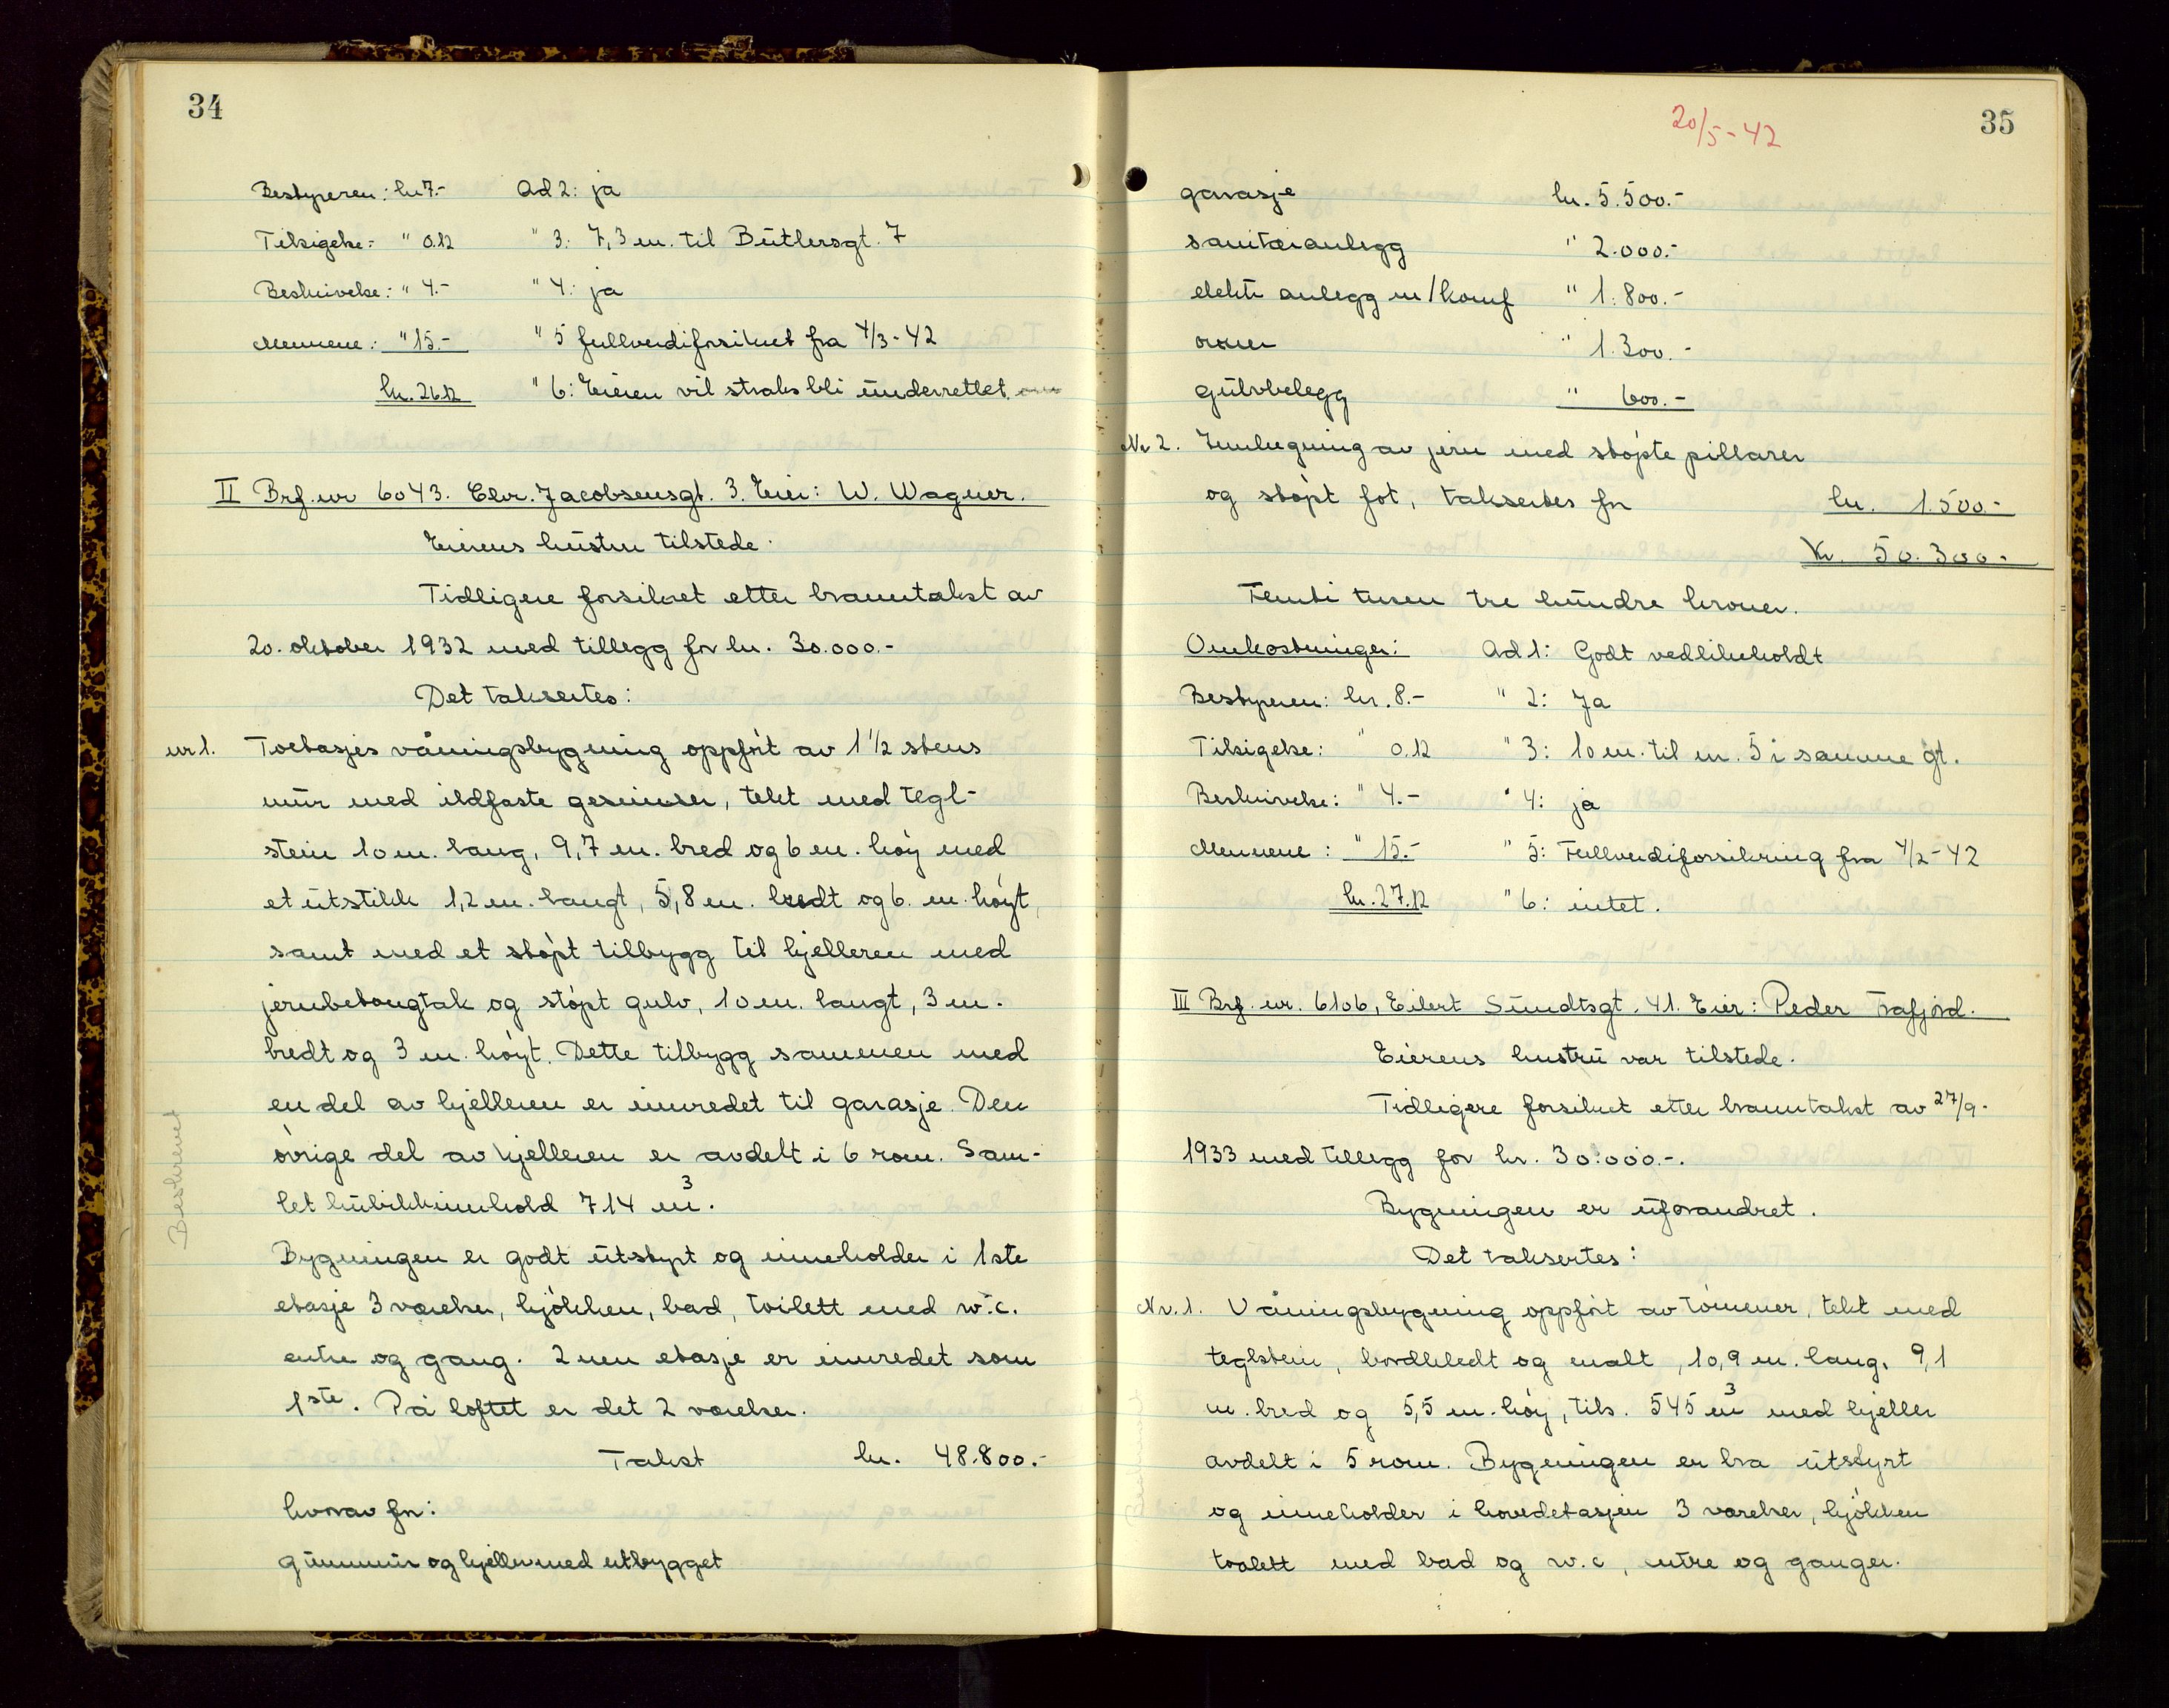 34
Bestyreren: kr 7.- Ad 2: ja
Tilsigelse: " 0.12 " 3: 7,3 m. til Butlersgt. 7
Beskrivelse: " 4.- " 4: ja
Mennene: " 15.- " 5 fullverdiforsikret fra 4/3-42
kr. 26.12 " 6: Eieren vil straks bli underrettet.
II Brf. nr 6043. Chr. Jacobsensgt. 3. Eier: W. Wagner.
Eierens hustru tilstede.
Tidligere forsikret etter branntakst av
20. oktober 1932 med tillegg for kr. 30.000.-
Det takseртes:
nr 1. Toetasjes våningsbygning oppført av 1 1/2 stens
mur med ildfaste gesimser, tekt med tegl-
stein 10 m. lang, 9,7 m. bred og 6 m. høy med
et utstikk 1,2 m. langt, 5,8 m. bredt og 6. m. høyt,
samt med et støpt tilbygg til kjelleren med
jernbetongtak og støpt gulv, 10 m. langt, 3 m.
bredt og 3 m. høyt. Dette tilbygg sammen med
en del av kjelleren er innredet til garasje. Den
øvrige del av kjelleren er avdelt i 6 rom. Sam-
let kubikkinnhold 714 m³.
Beskrevet
Bygningen er godt utstyrt og inneholder i 1ste
etasje 3 værelser, kjøkken, bad, toilett med w.c.
entre og gang. 2nen etasje er innredet som
1ste. På loftet er det 2 værelser.
Takst kr. 48.800.-
hvorav for:
grunnmur og kjeller med utbygget
20/5-42
35
garasje kr. 5.500.-
sanitæranlegg " 2.000.-
elektr anlegg m/komf " 1.800.-
ovner " 1.300.-
gulvbelegg " 600.-
Nr 2. Innhegning av jern med støpte pillarer
og støpt fot, takseртes for kr. 1.500.-
Kr. 50.300.-
Femti tusen tre hundre kroner.
Omkostninger: Ad 1: Godt vedlikeholdt
Bestyreren: kr. 8.- " 2: Ja
Tilsigelse: " 0.12 " 3: 10 m. til nr. 5 i samme gt.
Beskrivelse: " 4.- " 4: ja
Mennene: " 15.- " 5: Fullverdiforsikring fra 4/2-42
kr. 27.12 " 6: intet.
III Brf. nr. 6106, Eilert Sundtsgt. 41. Eier: Peder Frafjord.
Eierens hustru var tilstede.
Tidligere forsikret etter branntakst av 27/9-
1933 med tillegg for kr. 30.000.-.
Bygningen er uforandret.
Det taksertes:
Nr. 1. Våningsbygning oppført av tømmer, tekt med
teglstein, bordkledt og malt, 10,9 m. lang, 9,1
m. bred og 5,5 m. høy, tils. 545 m³ med kjeller
avdelt i 5 rom. Bygningen er bra utstyrt
og inneholder i hovedetasjen 3 værelser, kjøkken
toalett med bad og w.c, entre og ganger.